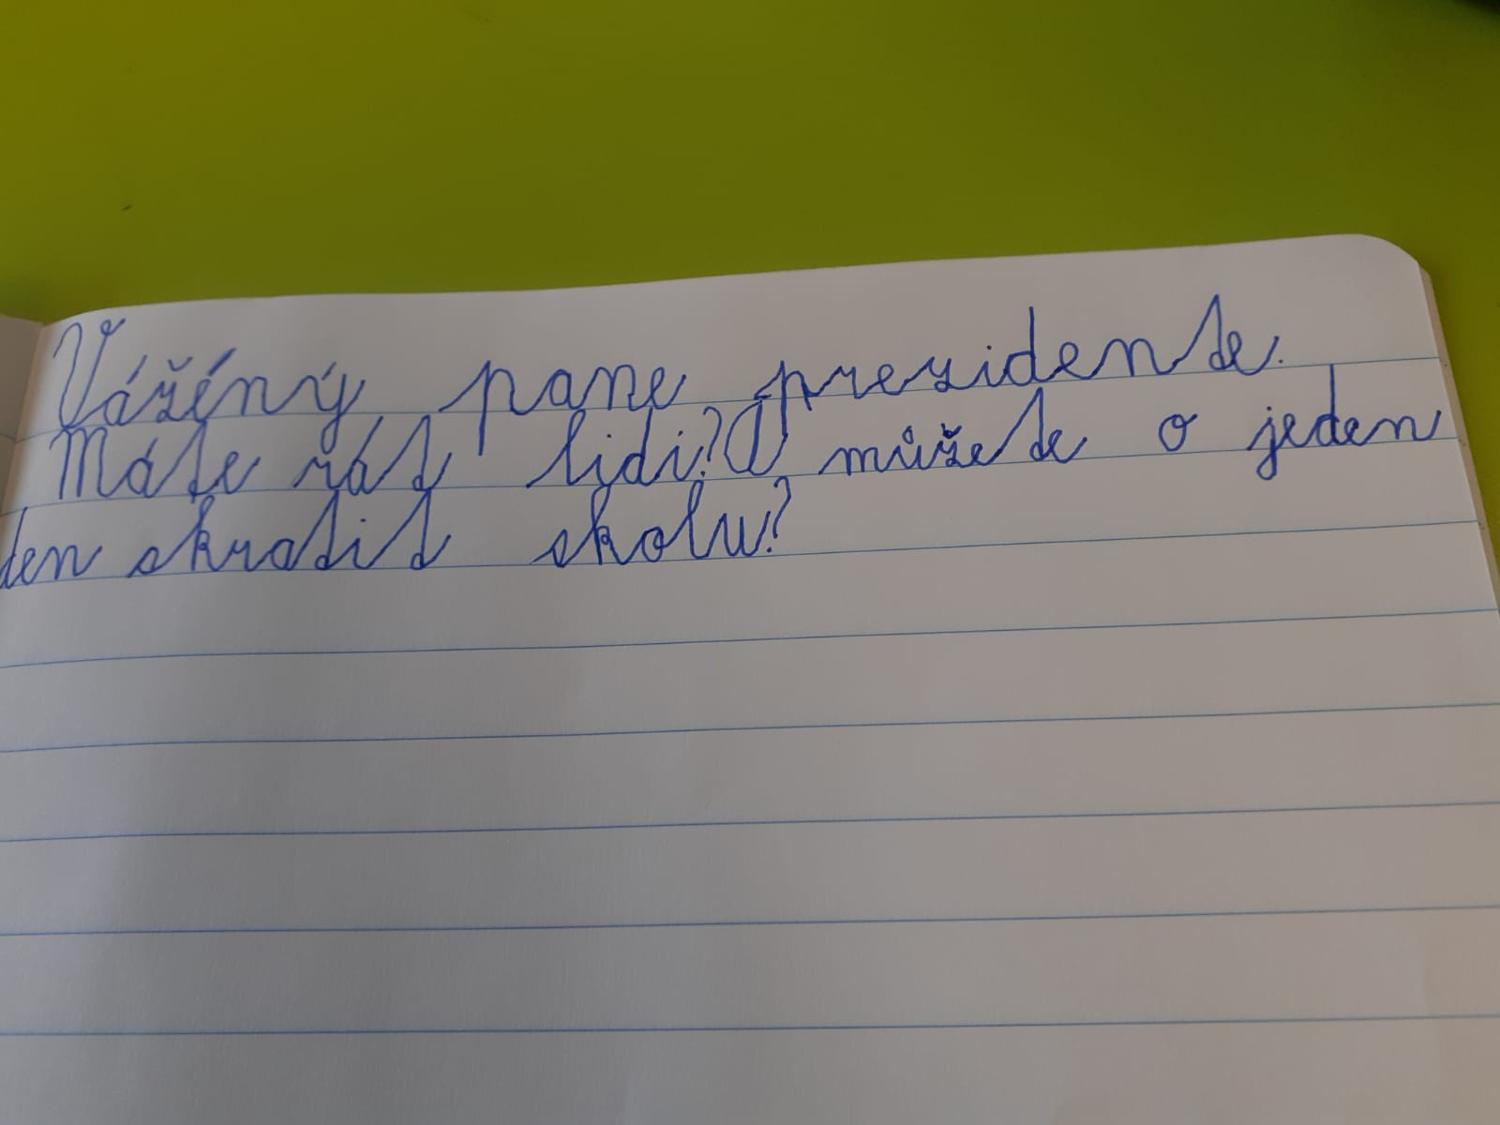 Vážéný pane prezidente.
Máte rát lidi? A můžete o jeden
den skratit skolu?